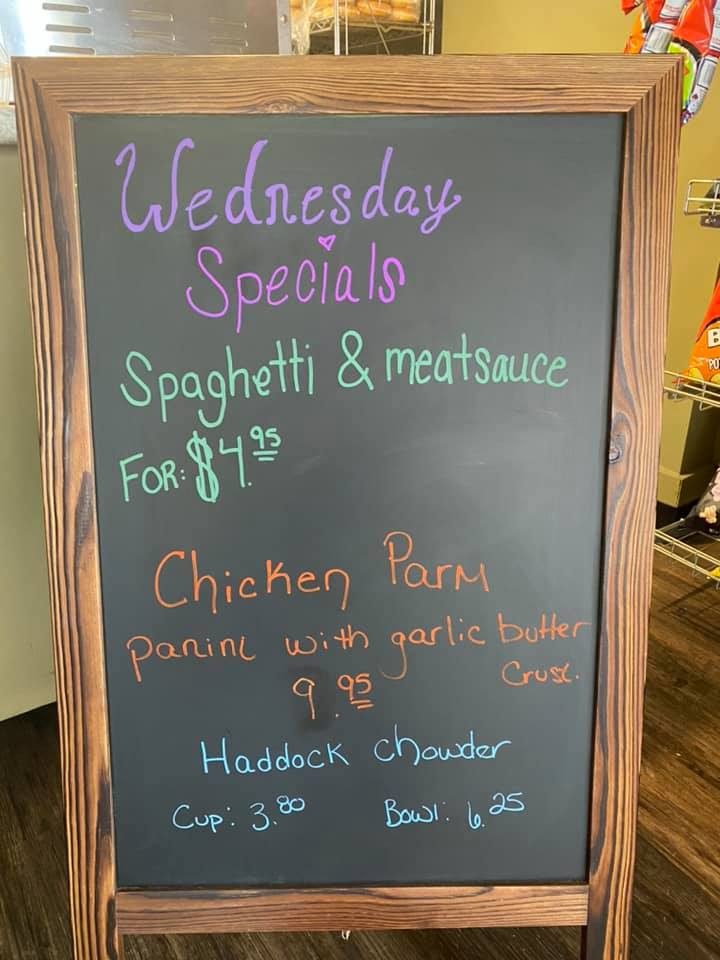 Wednesday
Specials
Spaghetti & meatsauce
FOR: $4.95
Chicken Parm
panini with garlic butter
Crust.
9.95
Haddock chowder
Cup: 3.80 Bowl: 6.25